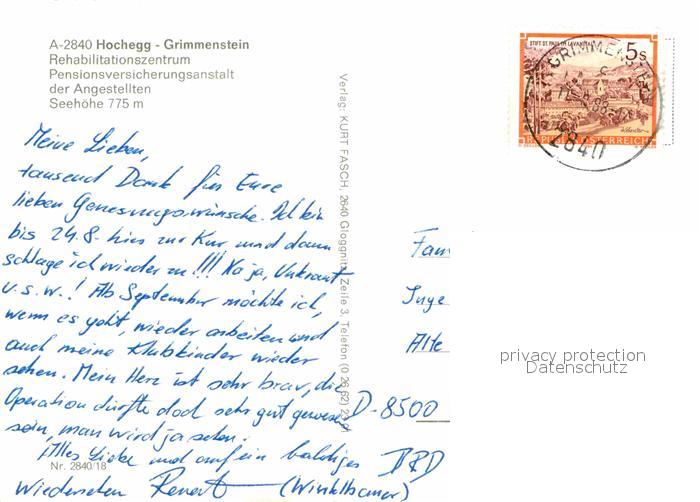 A-2840 Hochegg - Grimmenstein
Rehabilitationszentrum
Pensionsversicherungsanstalt
der Angestellten
Seehöhe 775 m
Meine Lieben,
tausend Dank für Eure
lieben Genesungswünsche. Ich bin
bis 24.8. hier zur Kur und dann
schlage ich wieder zu!!! Na ja, Unkraut
u.s.w.! Ab September möchte ich,
wenn es geht, wieder arbeiten und
auch meine Klubkinder wieder
sehen. Mein Herz ist sehr brav, die
Operation dürfte doch sehr gut gewesen
sein, man wird ja sehen.
Alles Liebe und auf ein baldiges
Wiedersehen (Winklbauer)
Nr. 2840/18
Verlag: KURT FASCH, 2640 Gloggnitz, Zeile 3, Telefon (0 26 62)
STIFT ST. PAUL IM LAVANTTAL
5s
REPUBLIK ÖSTERREICH
GRIMMENSTEIN
2840
Fam
Inge
Alte
D-8500
BRD
privacy protection
Datenschutz